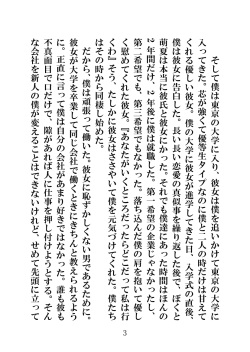 そして僕は東京の大学に入り、彼女は僕を追いかけて東京の大学に
入ってきた。芯が強くて優等生タイプなのに僕と二人の時だけは甘えて
くれる優しい彼女。僕の大学に彼女が進学してきた日、入学式の直後、
僕は彼女に告白した。長い長い恋愛の真似事を繰り返した後で、ぼくと
萌夏は本当に彼氏と彼女になった。それでも僕達にあった時間はほんの
2年間だけ、2年後に僕は就職した。第一希望の企業じゃなかったし、
第二希望でも、第三希望でもなかった。落ち込んだ僕の肩を抱いて優し
く慰めてくれた彼女。『あなたがいくところだったらどこだって私は行
くわ』そう、たしかに彼女はささやいて僕を元気づけてくれた。僕たち
はその時から同棲し始めた。
だから、僕は頑張って働いた。彼女に恥ずかしくない男であるために、
彼女が大学を卒業して同じ会社で働くときにきちんと教えられるよう
に。正直に言って僕は自分の会社があまり好きではなかった。誰も彼も
不真面目で口だけで、隙があれば人に仕事を押し付けようとする。そん
な会社を新人の僕が変えることはできないけれど、せめて先頭に立って
3